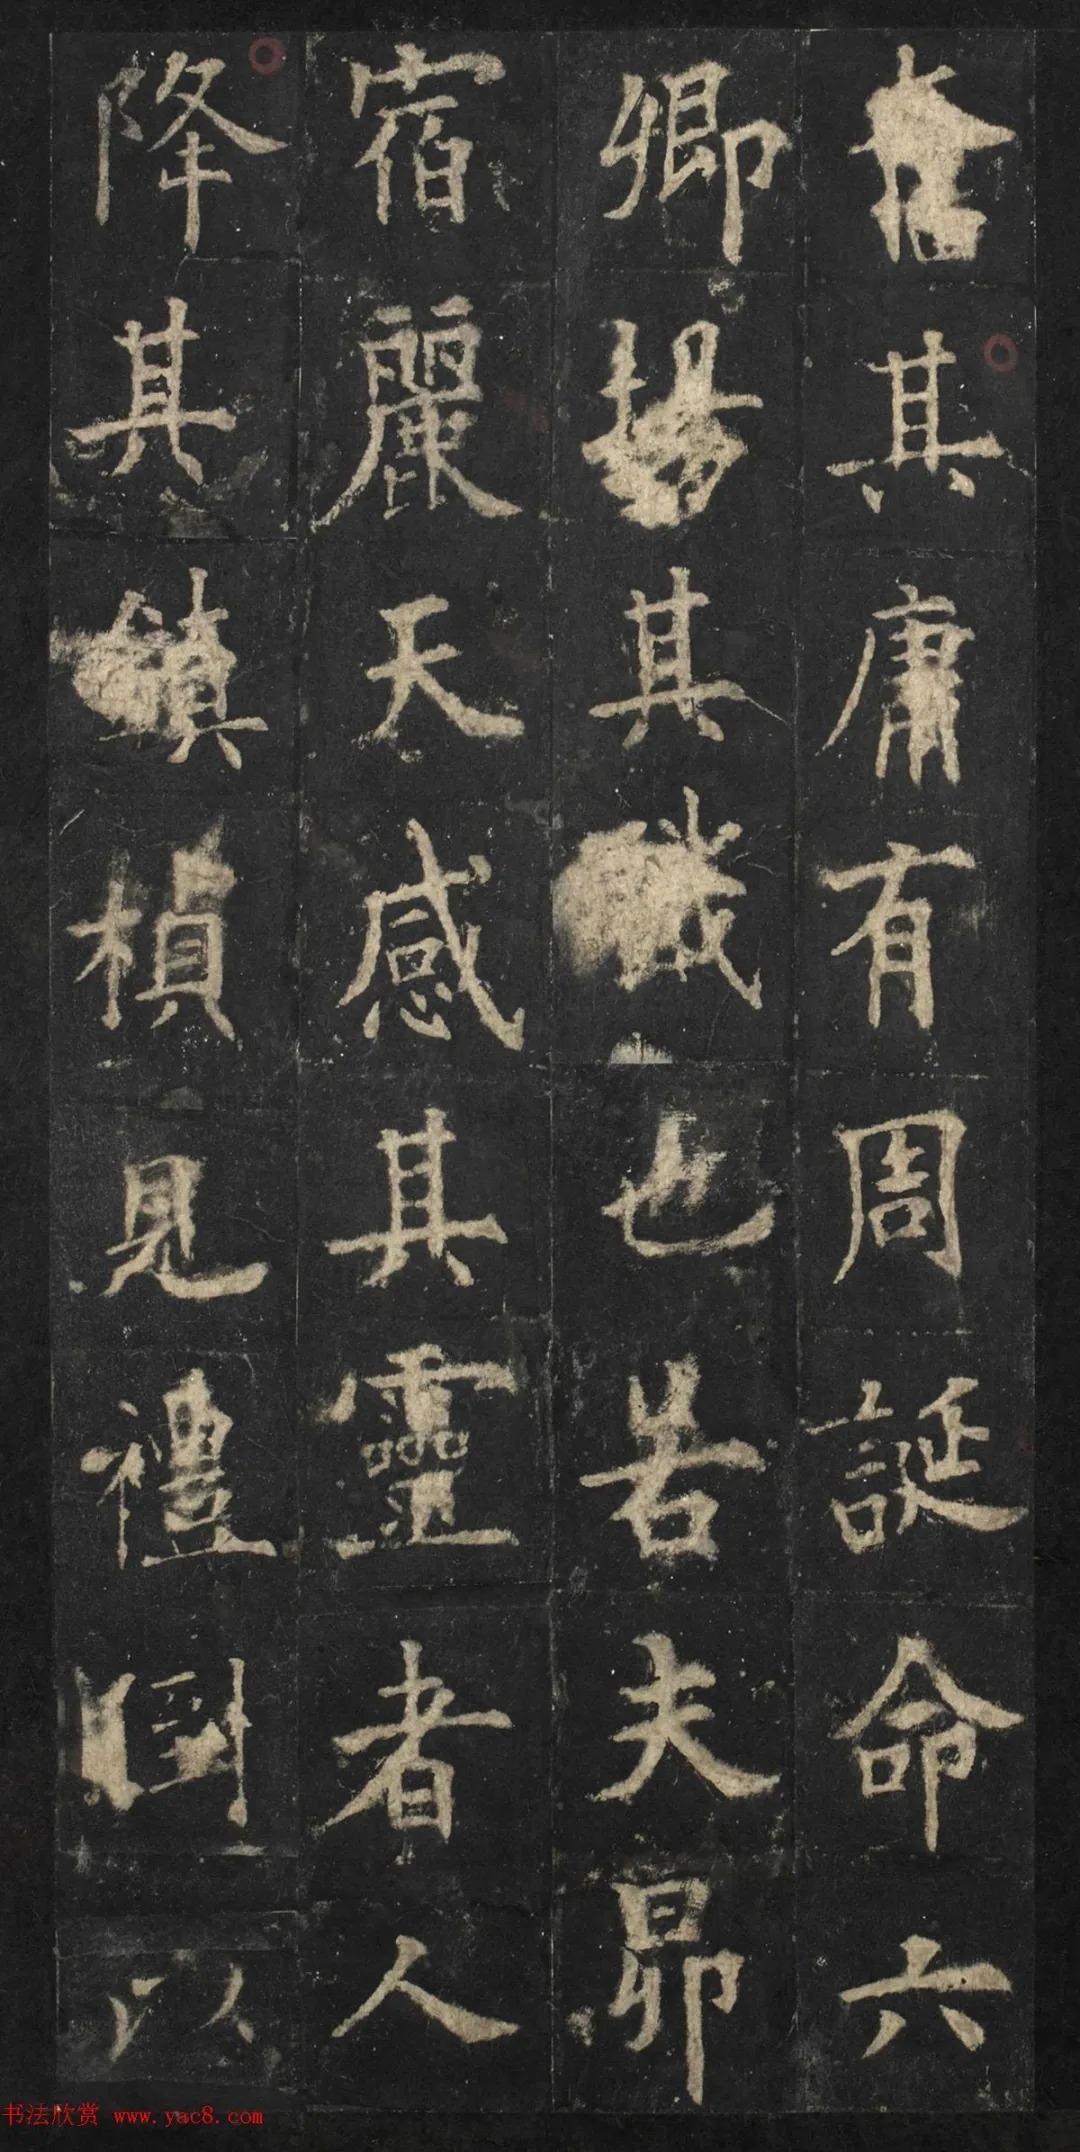 其庸有周誕命六
卿揚其職也若夫昴
宿麗天感其靈者人
降其鎮楨見禮闈以
书法欣赏 www.yac8.com